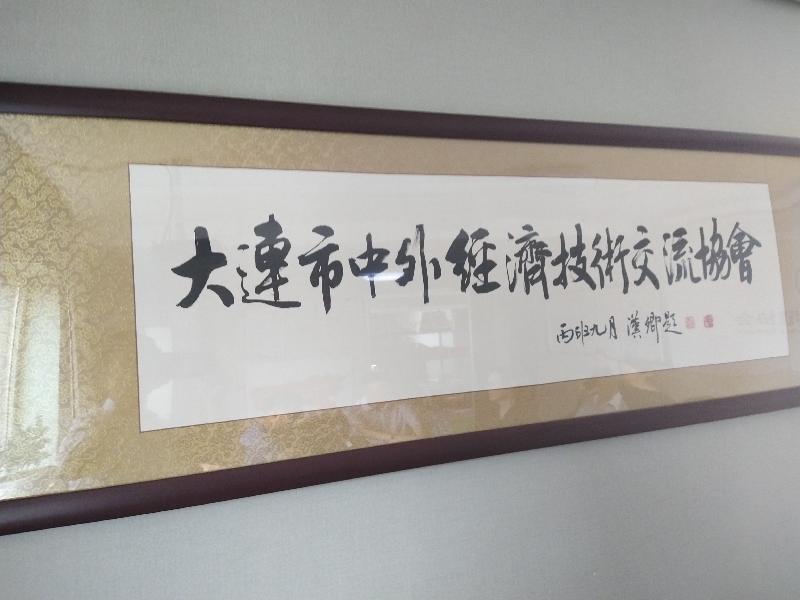 大連市中外經濟技術交流協會
丙班九月 漢卿题